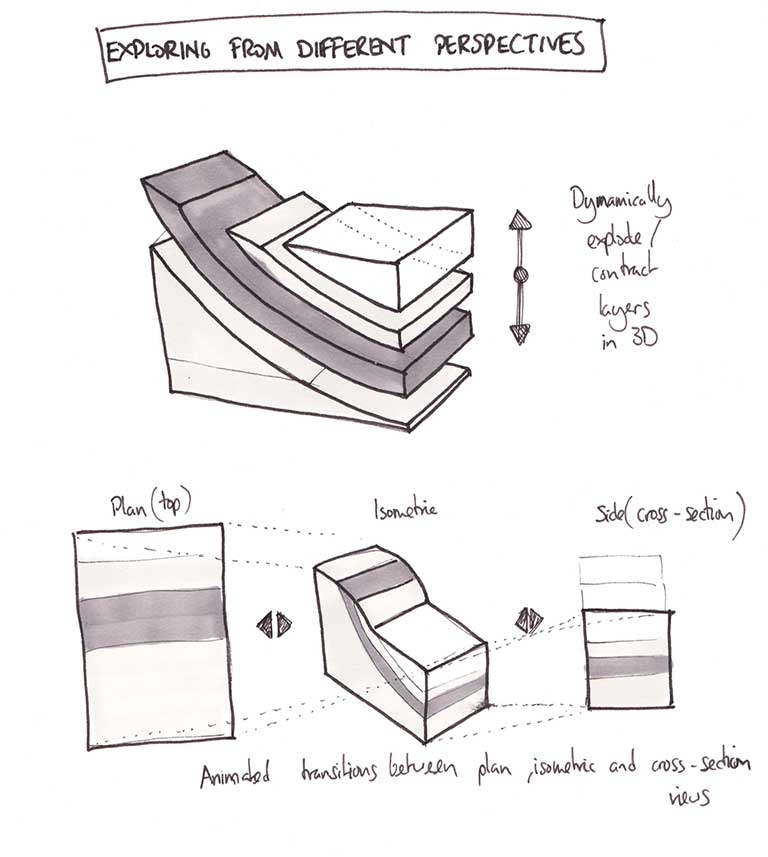 EXPLORING FROM DIFFERENT PERSPECTIVES
Dymamically
explode /
contract
layers
in 3D
Plan (top)
Isometric
Side (cross-section)
Animated transitions between plan, isometric and cross-section
views